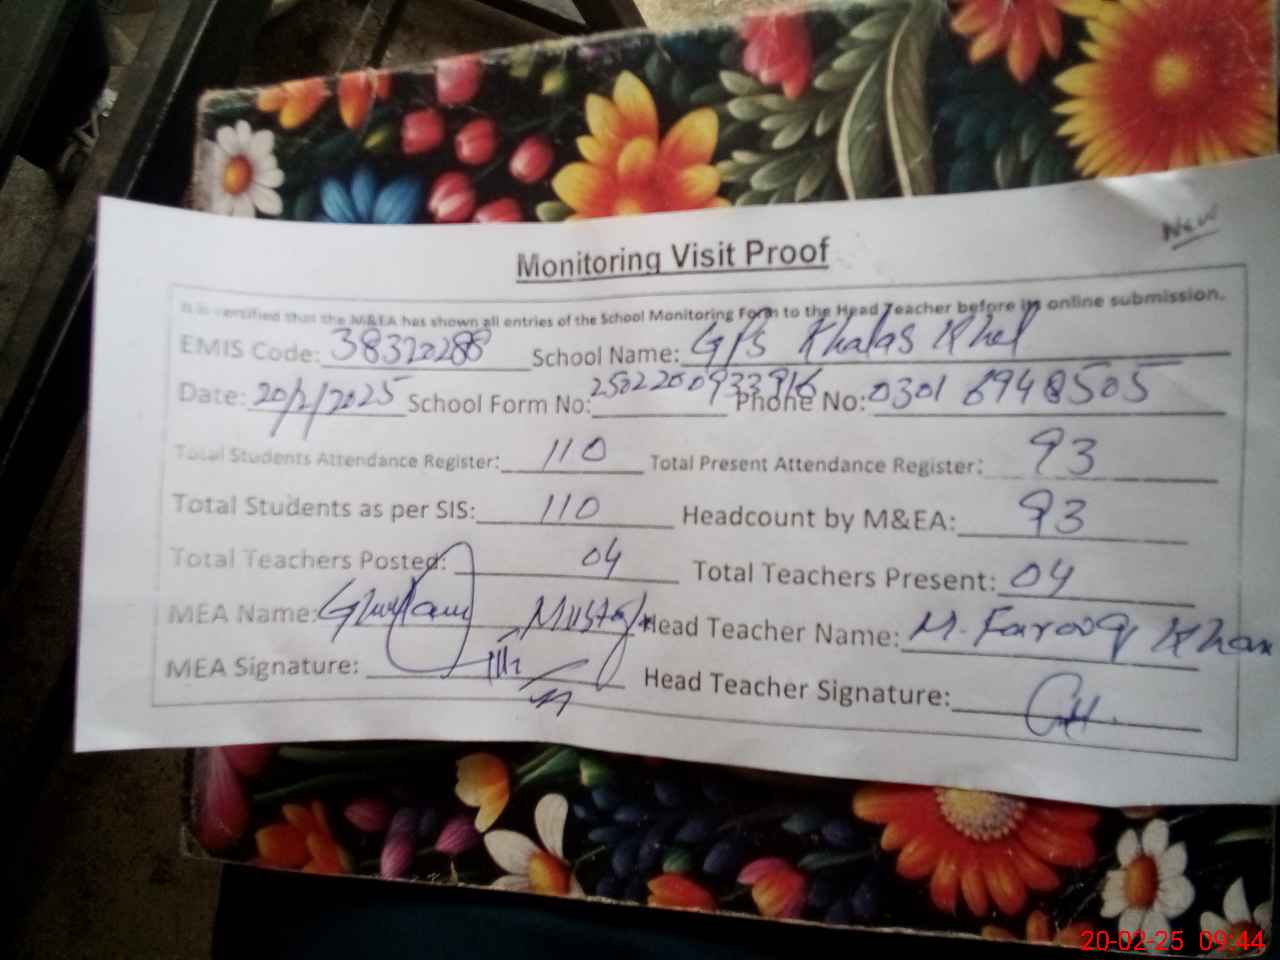 New
Monitoring Visit Proof
It is certified that the M&EA has shown all entries of the School Monitoring Form to the Head Teacher before its online submission.
EMIS Code: 38320288 School Name: GPS Khalas Khel
Date: 20/2/2025 School Form No: 2502200933916 Phone No: 0301 8948505
Total Students Attendance Register: 110 Total Present Attendance Register: 93
Total Students as per SIS: 110 Headcount by M&EA: 93
Total Teachers Posted: 04 Total Teachers Present: 04
MEA Name: Ghulam Mustafa Head Teacher Name: M. Farooq Khan
MEA Signature: Head Teacher Signature:
20-02-25 09:44